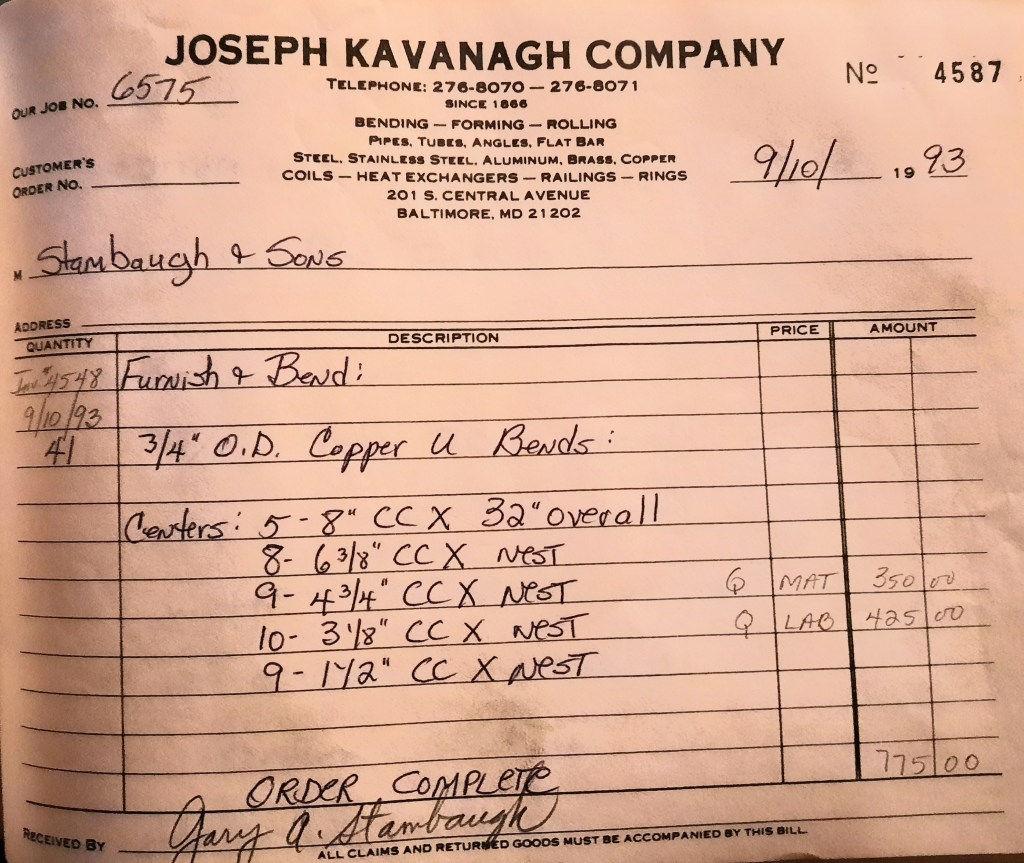 JOSEPH KAVANAGH COMPANY
Nº 4587
OUR JOB NO. 6575
TELEPHONE: 276-8070 — 276-8071
SINCE 1866
BENDING — FORMING — ROLLING
PIPES, TUBES, ANGLES, FLAT BAR
CUSTOMER'S ORDER NO.
STEEL, STAINLESS STEEL, ALUMINUM, BRASS, COPPER
COILS — HEAT EXCHANGERS — RAILINGS — RINGS
9/10/ 19 93
201 S. CENTRAL AVENUE
BALTIMORE, MD 21202
M Stambaugh & Sons
ADDRESS
QUANTITY DESCRIPTION PRICE AMOUNT
Inv. # 4548 Furnish & Bend:
9/10/93
41 3/4" O.D. Copper U Bends:
Centers: 5 - 8" CC X 32" overall
8- 6 3/8" CC X NEST
9- 4 3/4" CC X NEST Q MAT 350 00
10- 3 1/8" CC X NEST Q LAB 425 00
9- 1 1/2" CC X NEST
775 00
ORDER COMPLETE
RECEIVED BY Gary A. Stambaugh
ALL CLAIMS AND RETURNED GOODS MUST BE ACCOMPANIED BY THIS BILL.